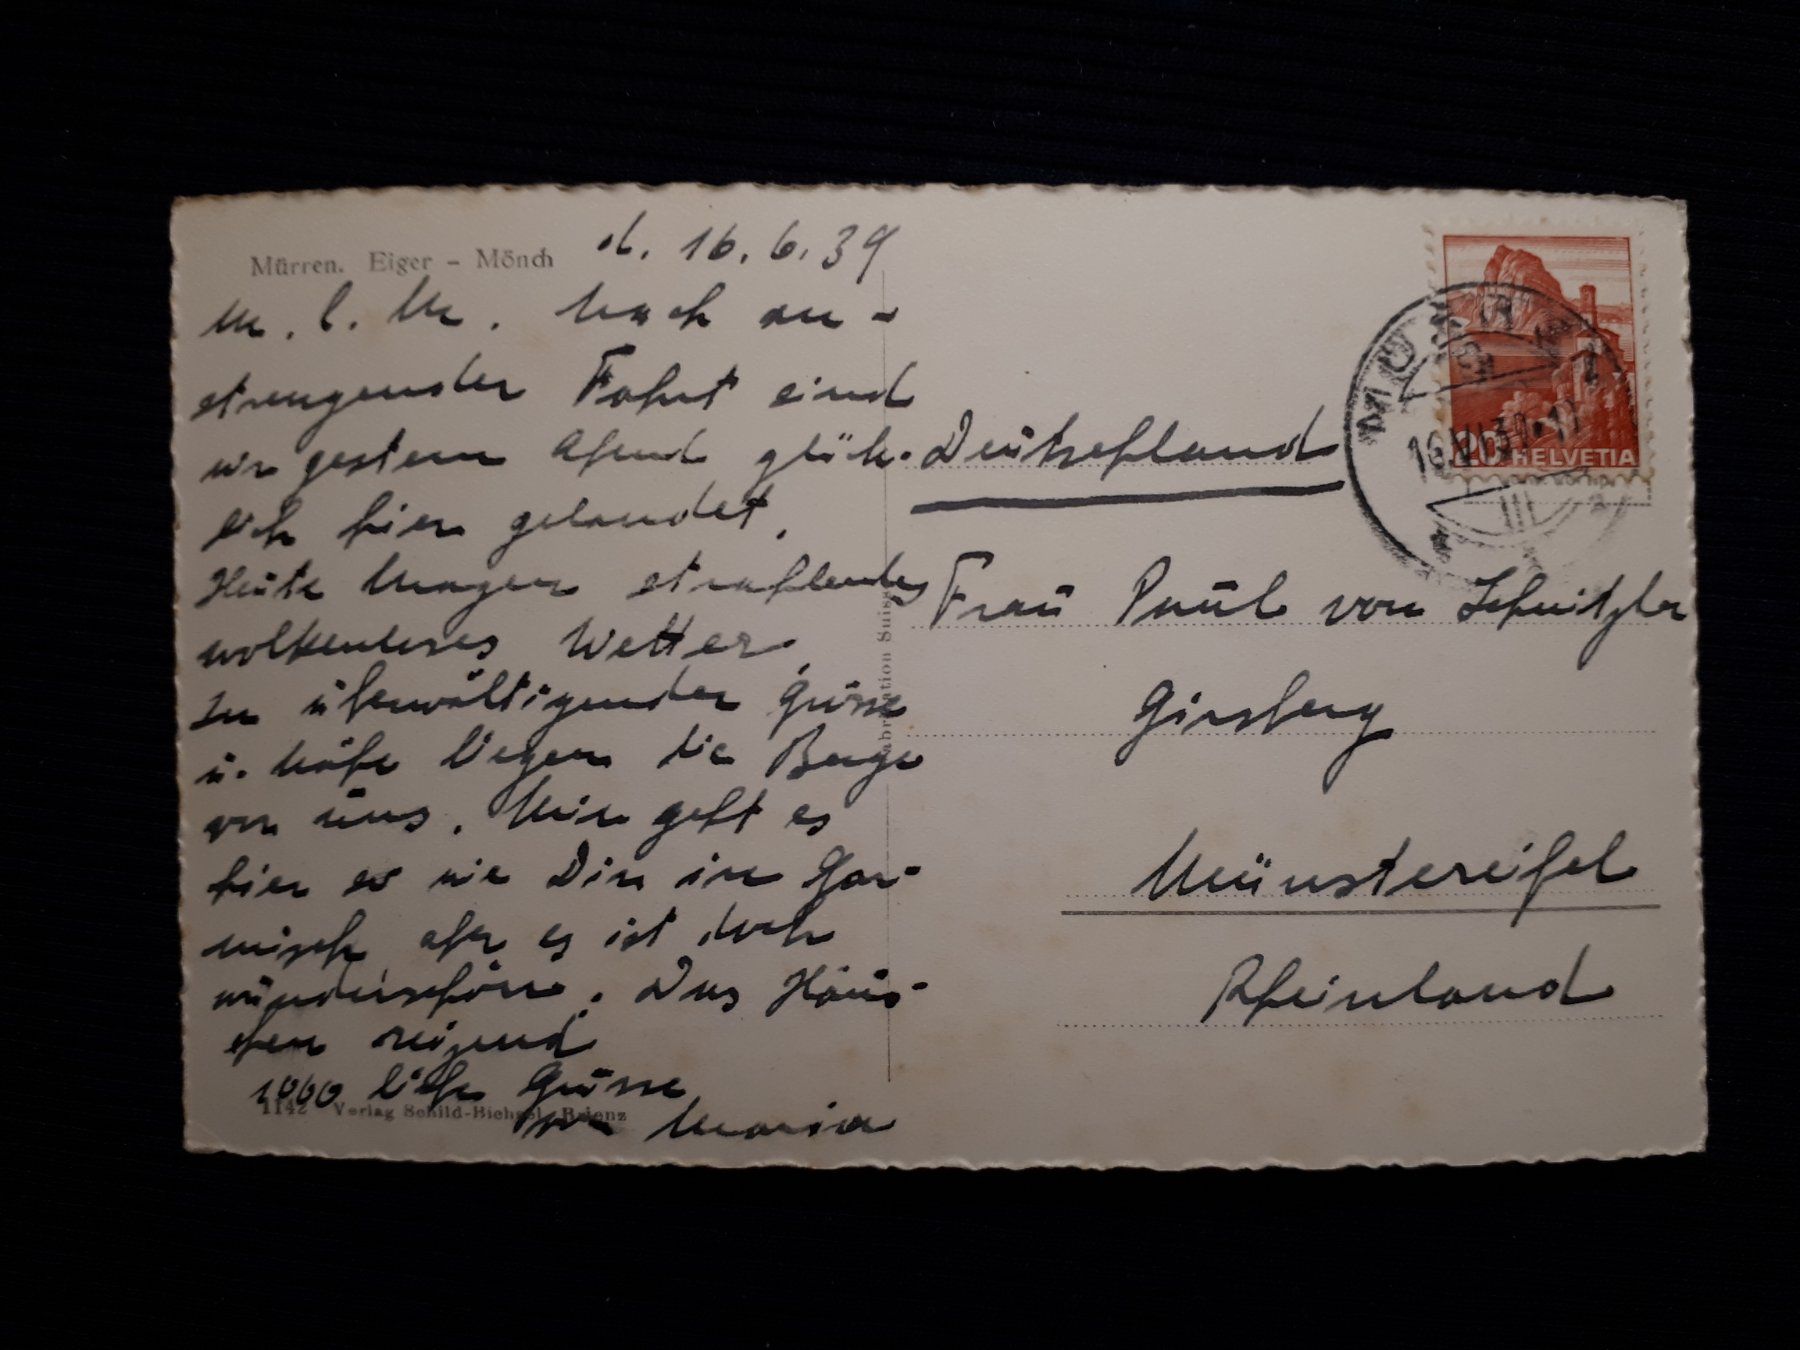 Mürren. Eiger – Mönch
d. 16.6.39
M. l. M. Nach an-
strengender Fahrt sind
wir gestern Abend glück-
lich hier gelandet.
Heute Morgen strahlendes
wolkenloses Wetter.
In überwältigender Grösse
u. Nähe liegen die Berge
vor uns. Mir geht es
hier so wie Dir in Gar-
misch aber es ist doch
wunderschön. Das Häus-
chen reizend
1000 liebe Grüsse
von Maria
1142 Verlag Schild-Bichsel, Brienz
Fabrication Suisse
MÜRREN
16.VI.39.-17
20 HELVETIA
Deutschland
Frau Paul von Schnitzler
Girsberg
Münstereifel
Rheinland